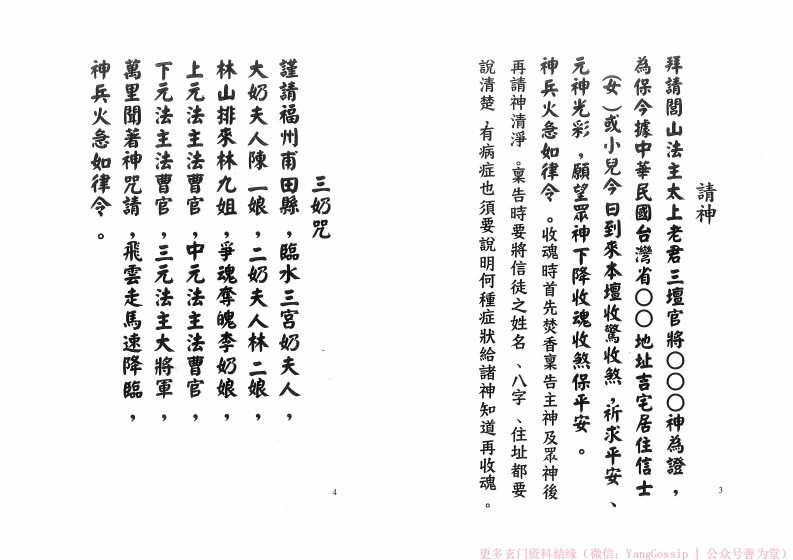 請神
拜請閭山法主太上老君三壇官將〇〇〇神為證，
為保今據中華民國台灣省〇〇地址吉宅居住信士
（女）或小兒今日到來本壇收驚收煞，祈求平安、
元神光彩，願望眾神下降收魂收煞保平安。
神兵火急如律令。收魂時首先焚香稟告主神及眾神後
再請神清淨。稟告時要將信徒之姓名、八字、住址都要
說清楚，有病症也須要說明何種症狀給諸神知道再收魂。
3
三奶咒
謹請福州甫田縣，臨水三宮奶夫人，
大奶夫人陳一娘，二奶夫人林二娘，
林山排來林九姐，爭魂奪魄李奶娘，
上元法主法曹官，中元法主法曹官，
下元法主法曹官，三元法主大將軍，
萬里聞著神咒請，飛雲走馬速降臨，
神兵火急如律令。
4
更多玄门资料结缘（微信：YangGossip | 公众号善为堂）